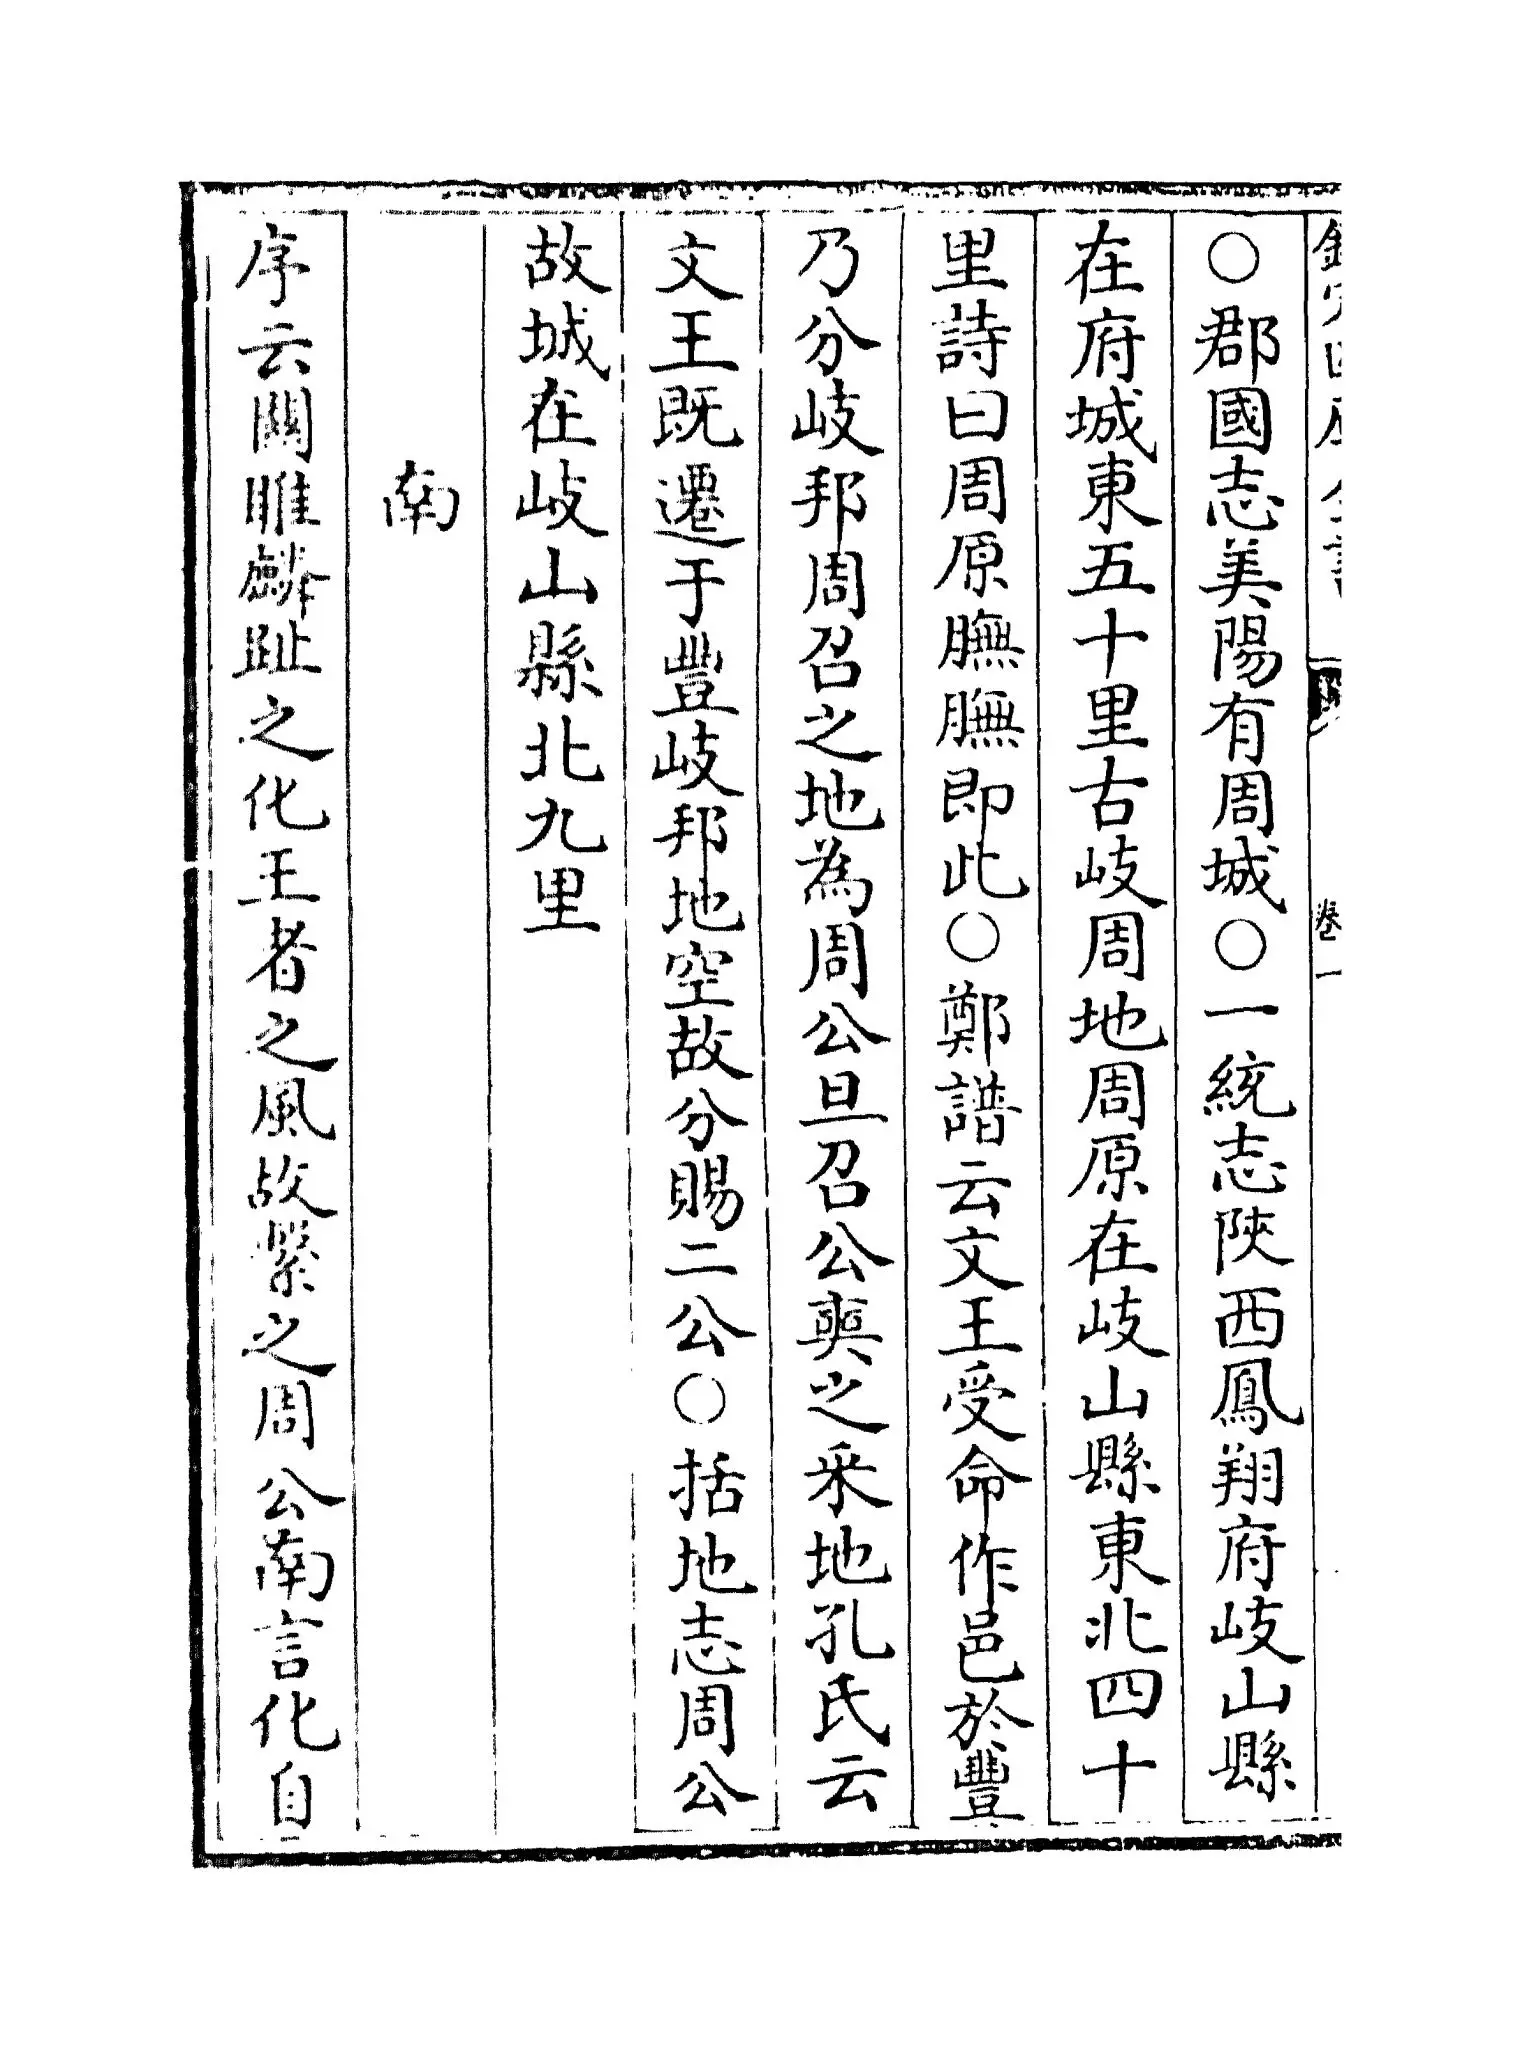 ○郡國志美陽有周城○一統志陜西鳳翔府岐山縣
在府城東五十里古岐周地周原在岐山縣東北四十
里詩曰周原膴膴即此○鄭譜云文王受命作邑於豐
乃分岐邦周召之地為周公旦召公奭之采地孔氏云
文王既遷于豐岐邦地空故分賜二公○括地志周公
故城在岐山縣北九里
南
序云關雎麟趾之化王者之風故繫之周公南言化自
卷一